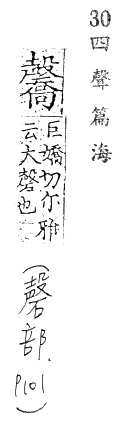 30四聲篇海
毊
巨嬌切尔雅
云大磬也
(磬部. P101)